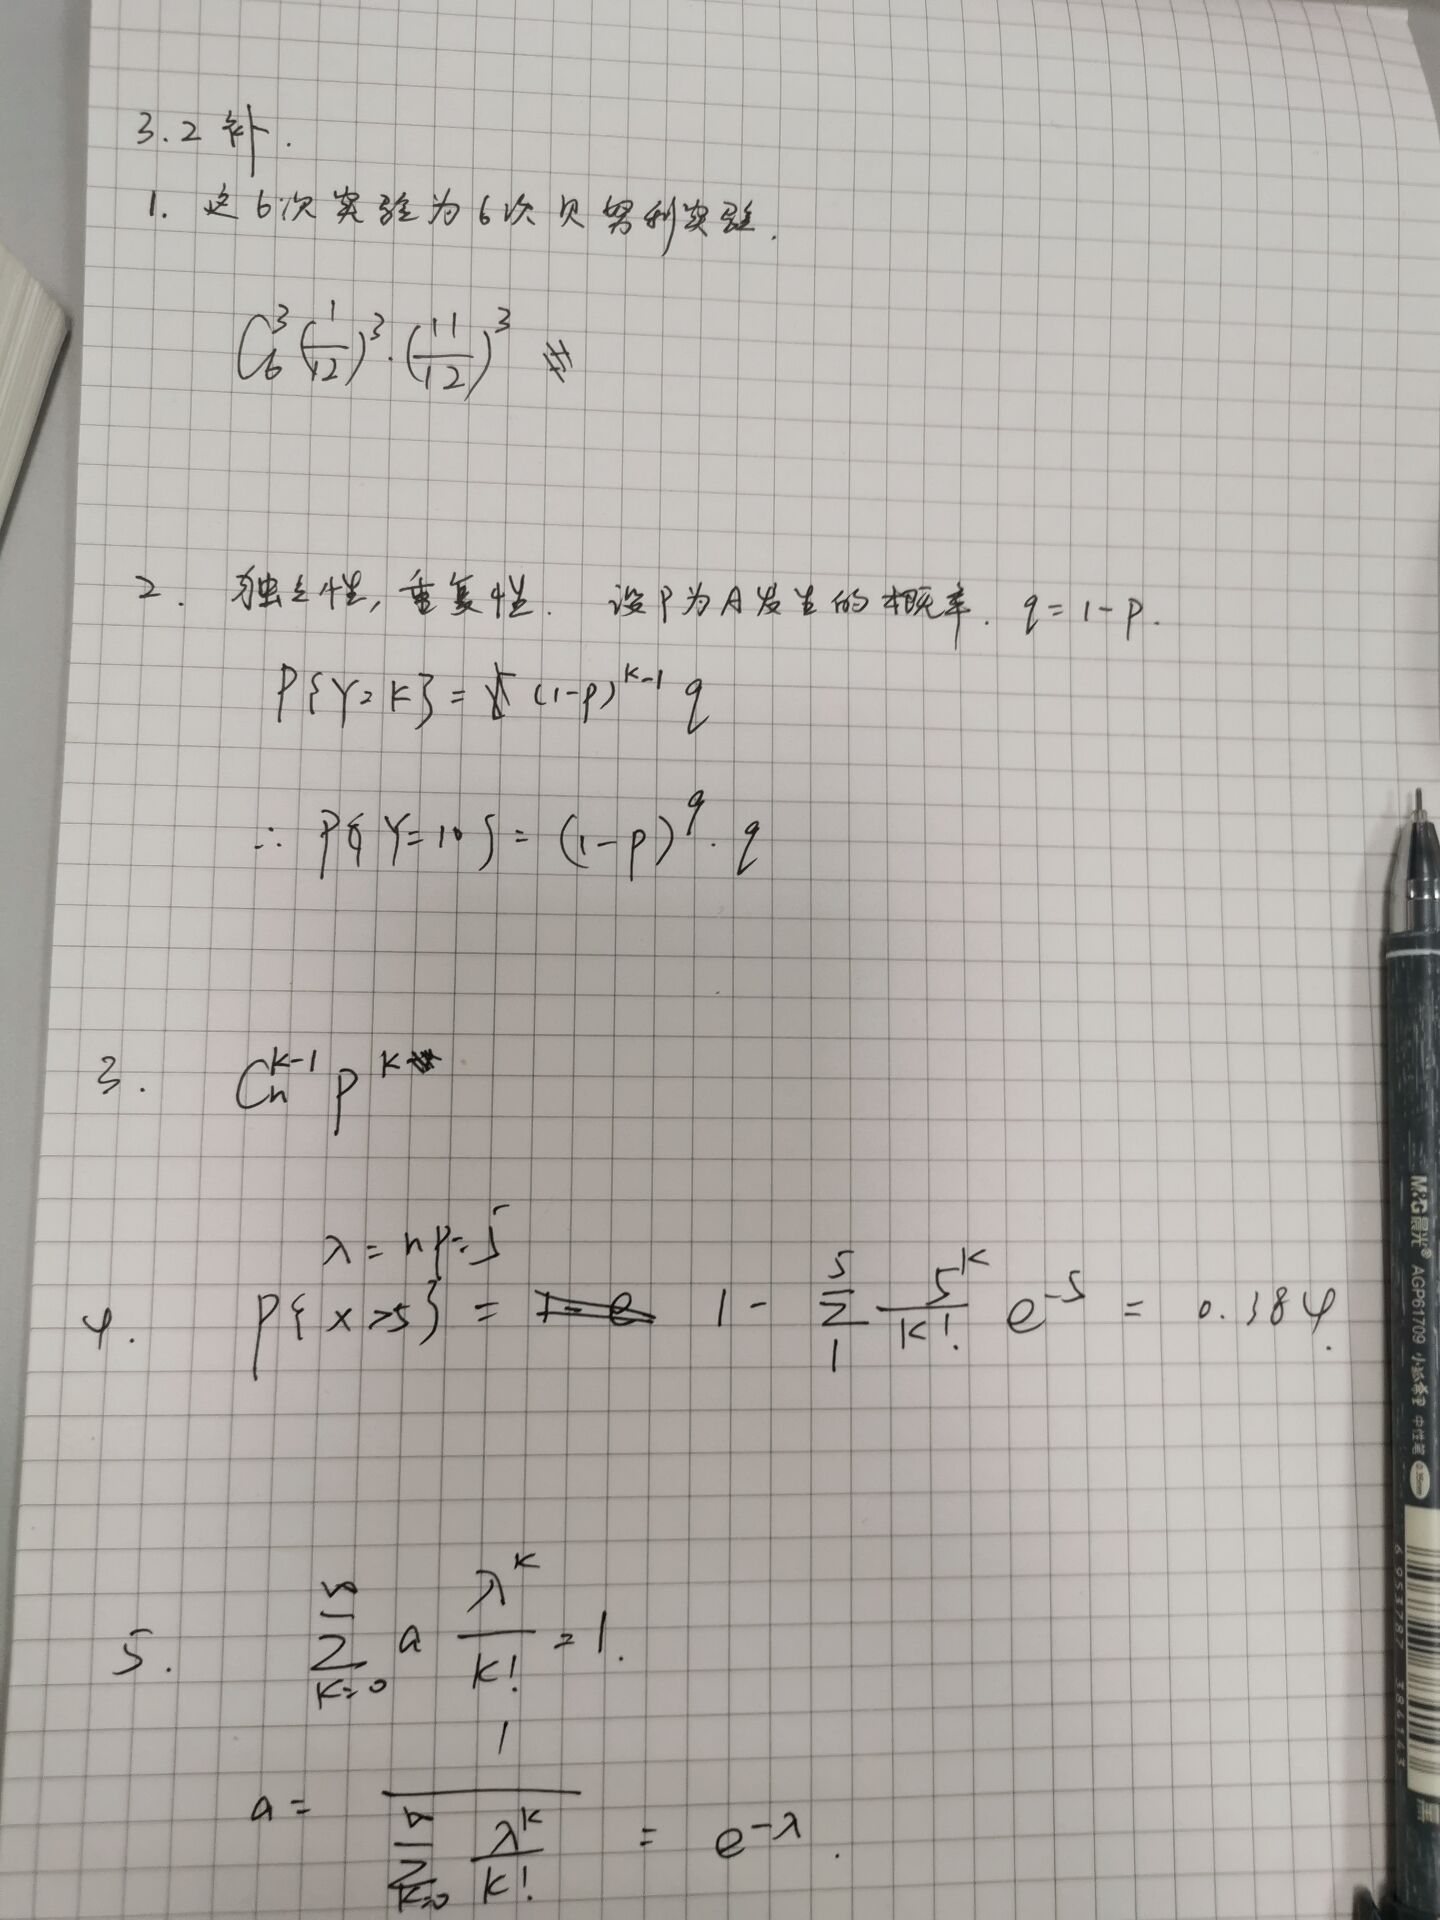 3.2 补.
1. 这6次实验为6次贝努利实验.
C₆³(1/12)³·(11/12)³
2. 独立性,重复性. 设P为A发生的概率. q=1-p.
P{Y=K}= (1-p)^{k-1} q
∴ P{Y=10}=(1-p)^9·q
3. C_n^{k-1} p^k
λ=np=5
4. P{x>5} = 1- Σ_1^5 5^K/K! e^{-5} = 0.384.
5. Σ_{K=0}^n a λ^K/K! =1.
a= 1/(Σ_{K=0}^n λ^K/K!) = e^{-λ}.
M&G晨光® AGP61709 中性笔 0.35mm
6 953787 386143